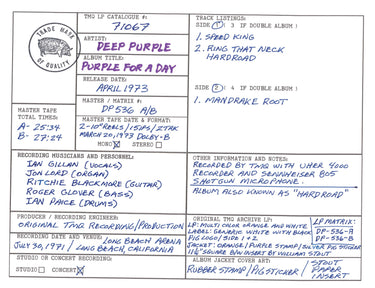 TRADE MARK
OF QUALITY
TMQ LP CATALOGUE #:
71067
ARTIST:
DEEP PURPLE
ALBUM TITLE:
PURPLE FOR A DAY
RELEASE DATE:
APRIL 1973
MASTER / MATRIX #:
DP 536 A/B
MASTER TAPE
TOTAL TIMES:
A- 25:34
B- 27:24
MASTER TAPE DATE & FORMAT:
2-10" REELS / 15 IPS / 2 TRK
MARCH 20, 1973 DOLBY-B
MONO STEREO
TRACK LISTINGS:
SIDE 1 (3 IF DOUBLE ALBUM)
1. SPEED KING
2. RING THAT NECK
HARDROAD
SIDE 2 (4 IF DOUBLE ALBUM)
1. MANDRAKE ROOT
RECORDING MUSICIANS AND PERSONNEL:
IAN GILLAN (VOCALS)
JON LORD (ORGAN)
RITCHIE BLACKMORE (GUITAR)
ROGER GLOVER (BASS)
IAN PAICE (DRUMS)
OTHER INFORMATION AND NOTES:
RECORDED BY TMQ WITH UHER 4000
RECORDER AND SENNHEISER 805
SHOTGUN MICROPHONE.
ALBUM ALSO KNOWN AS "HARDROAD"
PRODUCER / RECORDING ENGINEER:
ORIGINAL TMQ RECORDING/PRODUCTION
RECORDING DATE AND VENUE:
JULY 30, 1971 / LONG BEACH ARENA
LONG BEACH, CALIFORNIA
STUDIO OR CONCERT RECORDING:
STUDIO CONCERT
ORIGINAL TMQ ARCHIVE LP:
LP: MULTI COLOR ORANGE AND WHITE
LABEL: GENERIC WHITE WITH BLACK
PIG LOGO / SIDE 1+2
JACKET: ORANGE / PURPLE STAMP / SILVER PIG STICKER
SQUARE B/W INSERT BY WILLIAM STOUT
LP MATRIX:
DP-536-A
DP-536-B
ALBUM JACKET COVER ART:
RUBBER STAMP / PIG STICKER / STOUT
PAPER
INSERT